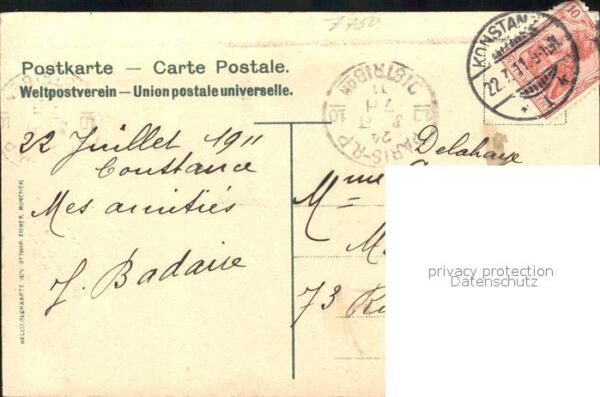 7750
Postkarte – Carte Postale.
Weltpostverein – Union postale universelle.
KONSTANZ
22.7.11.
* 1 *
PARIS-R.P
DISTRIBON
16
24
7
11
22 Juillet 1911
Constance
Mes amitiés
J. Badaire
Delahaye
Mme
M
73 R
privacy protection
Datenschutz
HELIOCOLORKARTE VON OTTMAR ZIEHER, MÜNCHEN